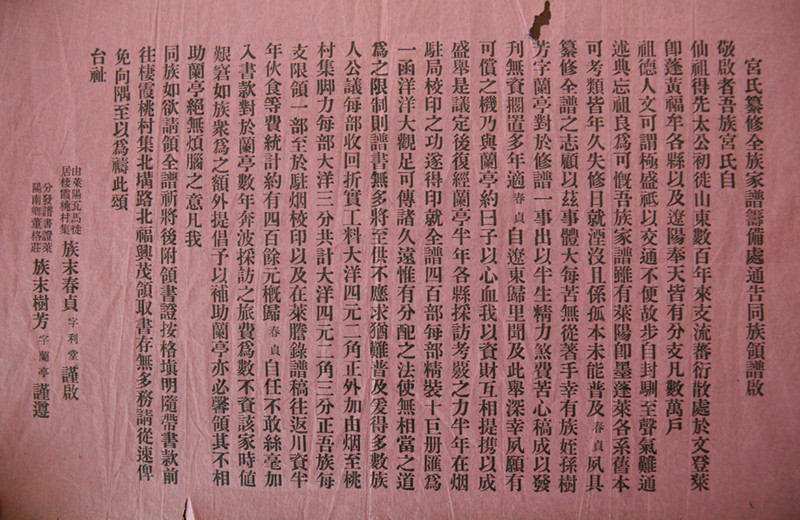 宮氏纂修全族家譜籌備處通告同族領譜啟
敬啟者吾族宮氏自
仙祖得先太公初徙山東數百年來支流蕃衍散處於文登萊
卽蓬黃福牟各縣以及遼陽奉天皆有分支凡數萬戶
祖德人文可謂極盛祗以交通不便故步自封馴至聲氣難通
述典忘祖良為可慨吾族家譜雖有萊陽卽墨蓬萊各系舊本
可考類皆年久失修日就湮沒且係孤本未能普及春貞夙具
纂修全譜之志顧以茲事體大每苦無從著手幸有族姪孫樹
芳字蘭亭對於修譜一事出以半生精力煞費苦心稿成以發
刊無資擱置多年適春貞自遼東歸里聞及此舉深幸夙願有
可償之機乃與蘭亭約曰子以心血我以資財互相提携以成
盛舉是議定後復經蘭亭半年各縣採訪考覈之力半年在烟
駐局校印之功遂得印就全譜四百部每部精裝十巨册匯為
一函洋洋大觀足可傳諸久遠惟有分配之法使無相當之道
為之限制則譜書無多將至供不應求猶難普及爰得多數族
人公議每部收回折實工料大洋四元二角正外加由烟至桃
村集脚力每部大洋三分共計大洋四元二角三分正吾族每
支限領一部至於駐烟校印以及在萊謄錄譜稿往返川資半
年伙食等費統計約有四百餘元概歸春貞自任不敢絲毫加
入書款對於蘭亭數年奔波採訪之旅費為數不資該家時値
艱窘如族衆為之額外提倡予以補助蘭亭亦必馨領其不相
助蘭亭絕無煩腦之意凡我
同族如欲請領全譜祈將後附領書證按格塡明隨帶書款前
往棲霞桃村集北墕路北福興茂領取書存無多務請從速俾
免向隅至以為禱此頌
台祉
由萊陽瓦馬徙居棲霞桃村集 族末春貞字利堂謹啟
分發譜書證萊陽南鄉董格莊 族末樹芳字蘭亭謹遵